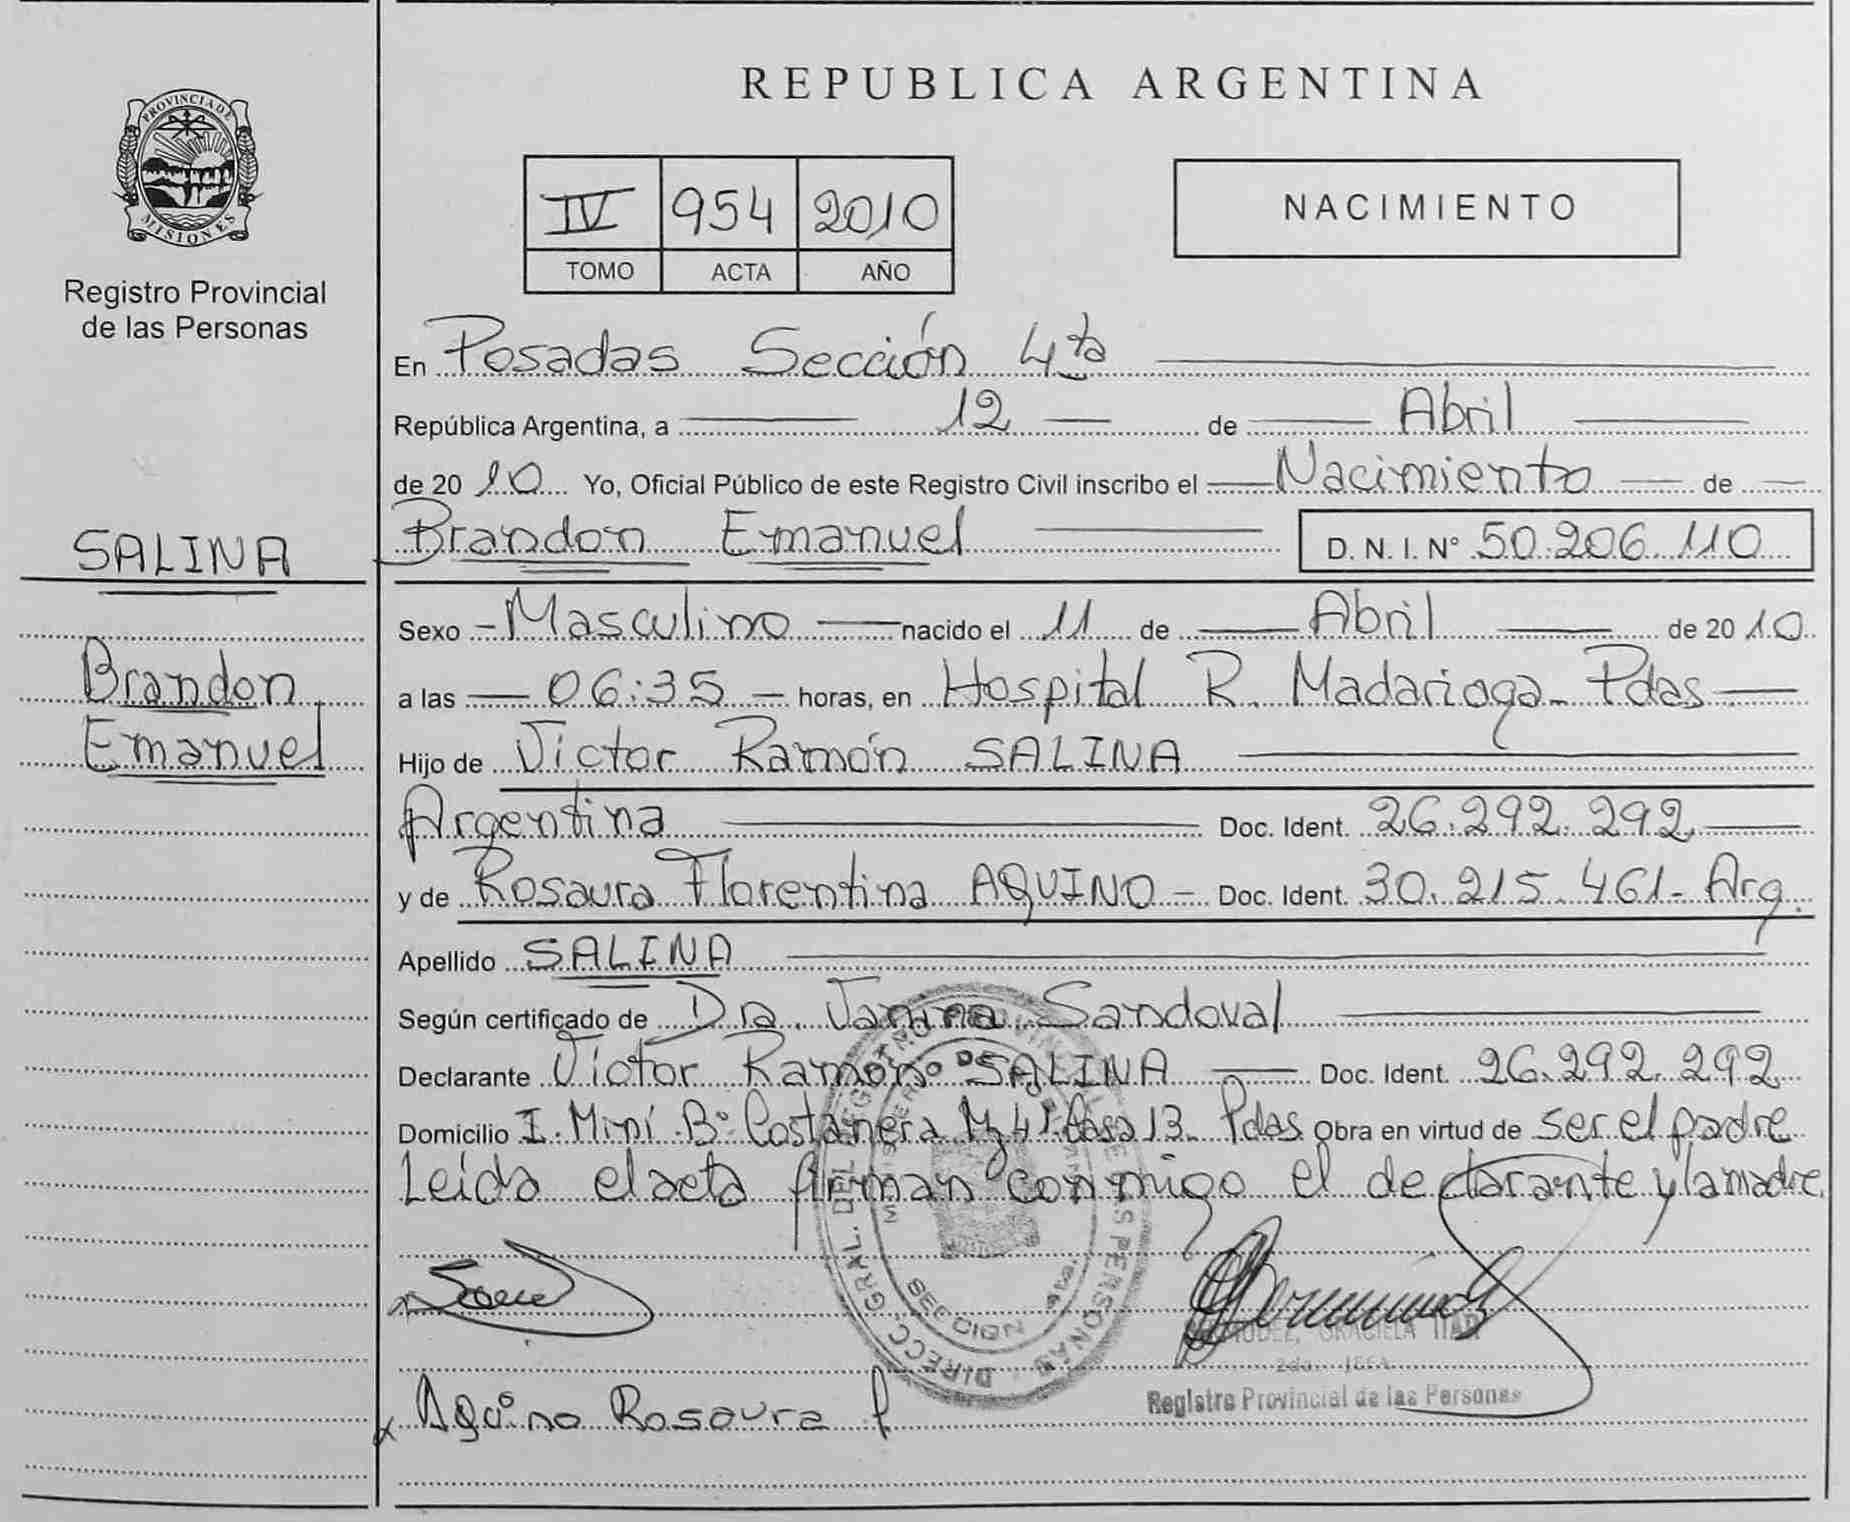 PROVINCIA DE
MISIONES
Registro Provincial
de las Personas
SALINA
Brandon
Emanuel
REPUBLICA ARGENTINA
IV 954 2010
TOMO ACTA AÑO
NACIMIENTO
En Posadas Sección 4ta
República Argentina, a 12 de Abril
de 2010 Yo, Oficial Público de este Registro Civil inscribo el Nacimiento de
Brandon Emanuel D. N. I. N° 50.206.110
Sexo Masculino nacido el 11 de Abril de 2010
a las 06:35 horas, en Hospital R. Madariaga - Pdas
Hijo de Victor Ramón SALINA
Argentina Doc. Ident. 26.292.292
y de Rosaura Florentina AQUINO - Doc. Ident. 30.215.461 - Arg.
Apellido SALINA
Según certificado de Dra. Janina Sandoval
Declarante Víctor Ramón SALINA Doc. Ident. 26.292.292
Domicilio I. Miní B° Costanera Mz 41 Casa 13 - Pdas Obra en virtud de ser el padre
Leída el acta firman conmigo el declarante y la madre.
DIRECC. GRAL. DEL REGISTRO PROVINCIAL DE LAS PERSONAS
SECCION 4ta.
GRACIELA
2do. JEFA
Registro Provincial de las Personas
Aquino Rosaura f